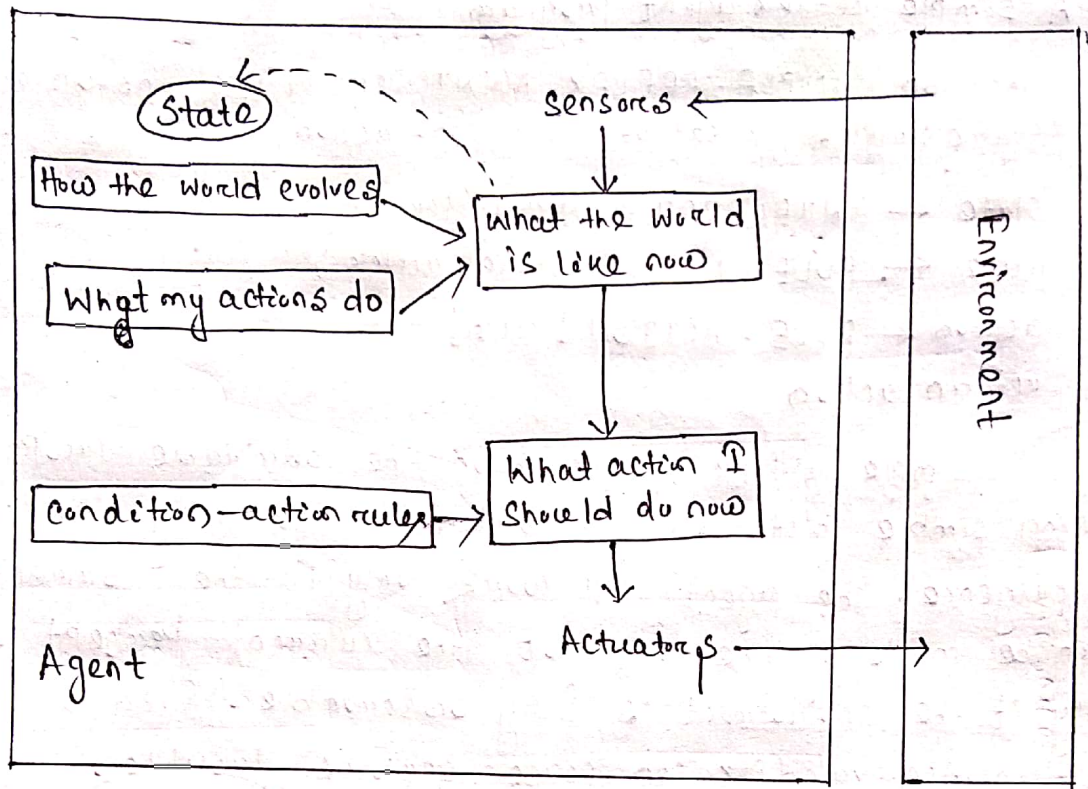 State
Sensors
How the world evolves
What the world
is like now
What my actions do
Environment
What action I
should do now
Condition-action rules
Actuators
Agent